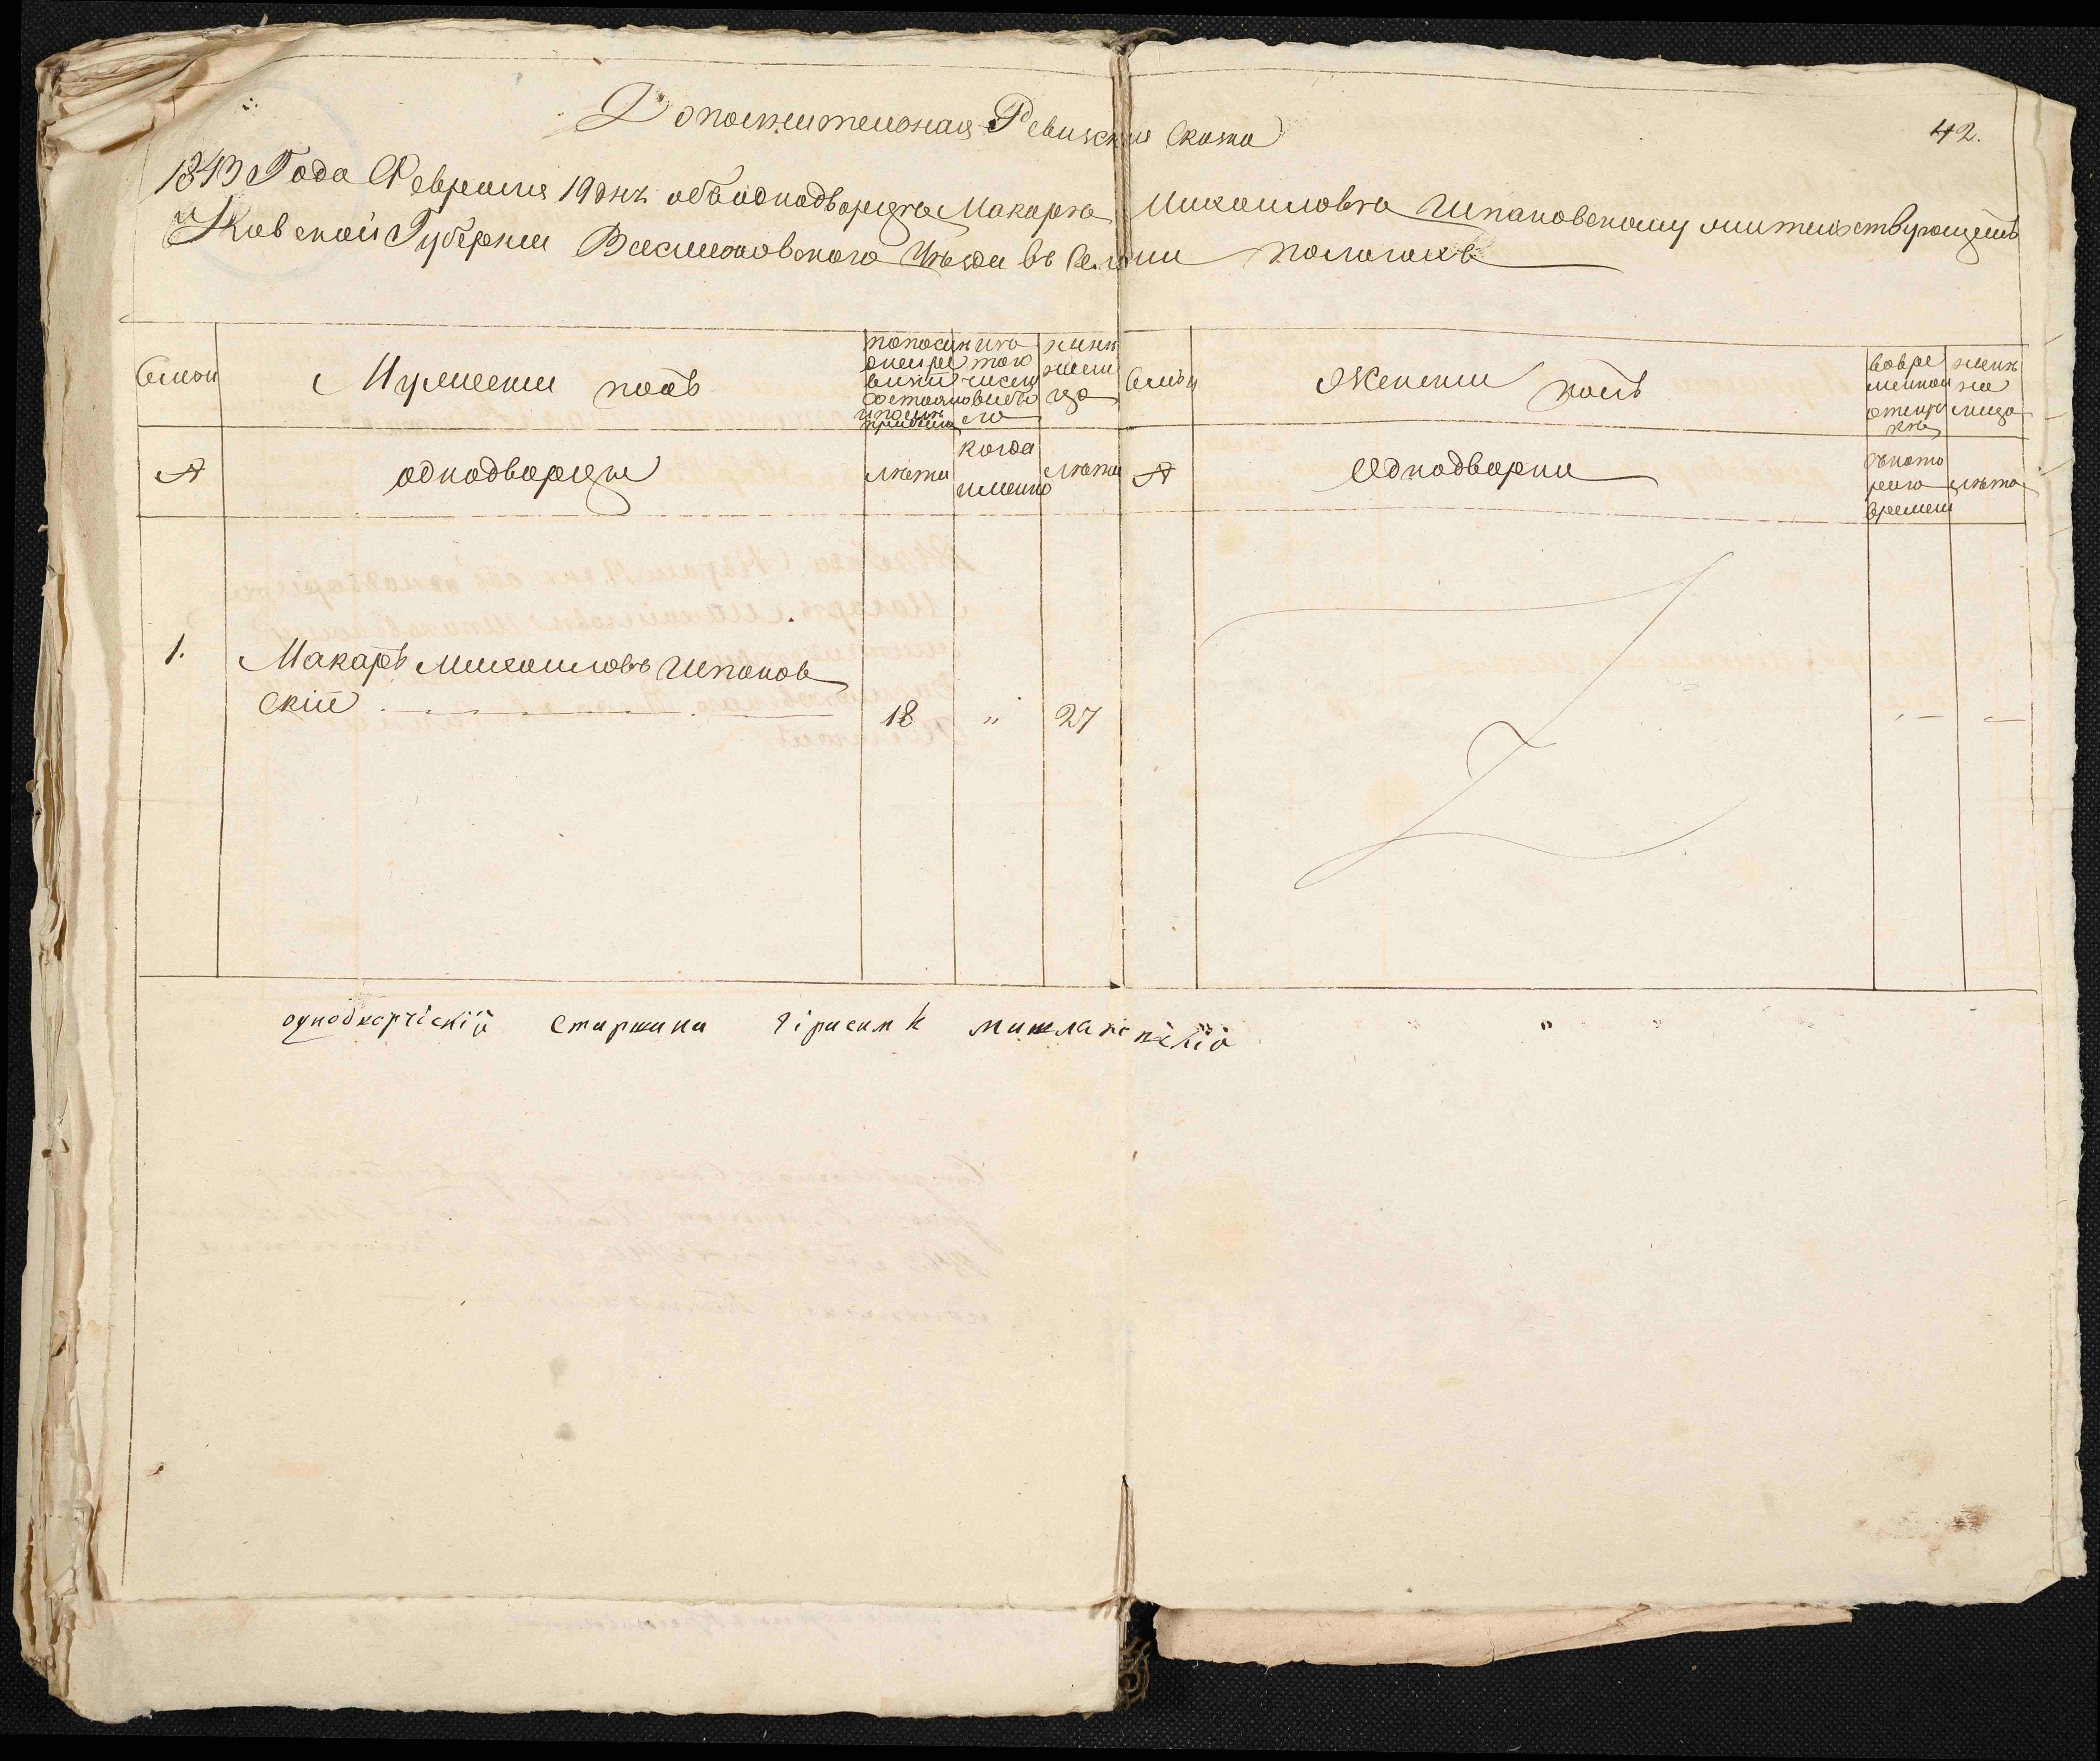 Дополнительная Ревизкия Скаска
42.
1843 Года Февраля 19 дня объ однодворце Макаре Михаиловѣ Шпановскому жительствующемъ
Киевской Губернии Васильковского Уѣзда въ Селении пологахъ
Семьи
Мужеский полъ
по последней ревизии состояло и после прибыло
изъ того числа выбыло
ныне на лицо
Семьи
Женский полъ
во временной отлучке
ныне на лицо
№
однодворцы
лѣта
когда имянно
лѣта
№
Однодворки
съ котораго времени
лѣта
1.
Макаръ Михаиловъ Шпанов
ский
18 " 27
однодворчіскій Старшина Гірасим